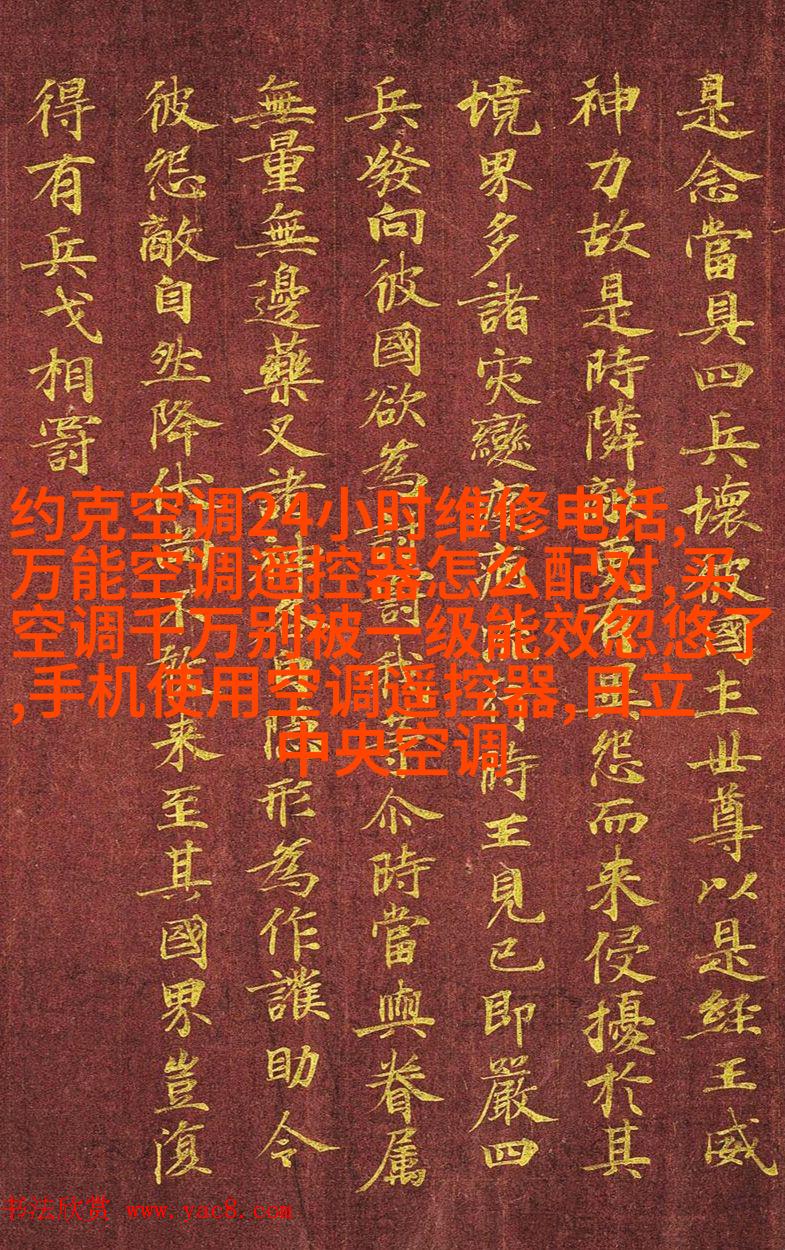 是念當具四兵壞彼國土世尊以是經王威
神力故是時隣敵更有異怨而来侵擾於其
境界多諸灾變疫病時王見已即嚴四
兵發向彼國欲為討罰我等尒時當與眷属
無量無邊藥叉諸神各自隱形為作護助令
彼怨敵自然降伏尚不敢来至其國界豈復
得有兵戈相罸
约克空调24小时维修电话,
万能空调遥控器怎么配对,买
空调千万别被一级能效忽悠了
,手机使用空调遥控器,日立
中央空调
书法欣赏 www.yac8.com